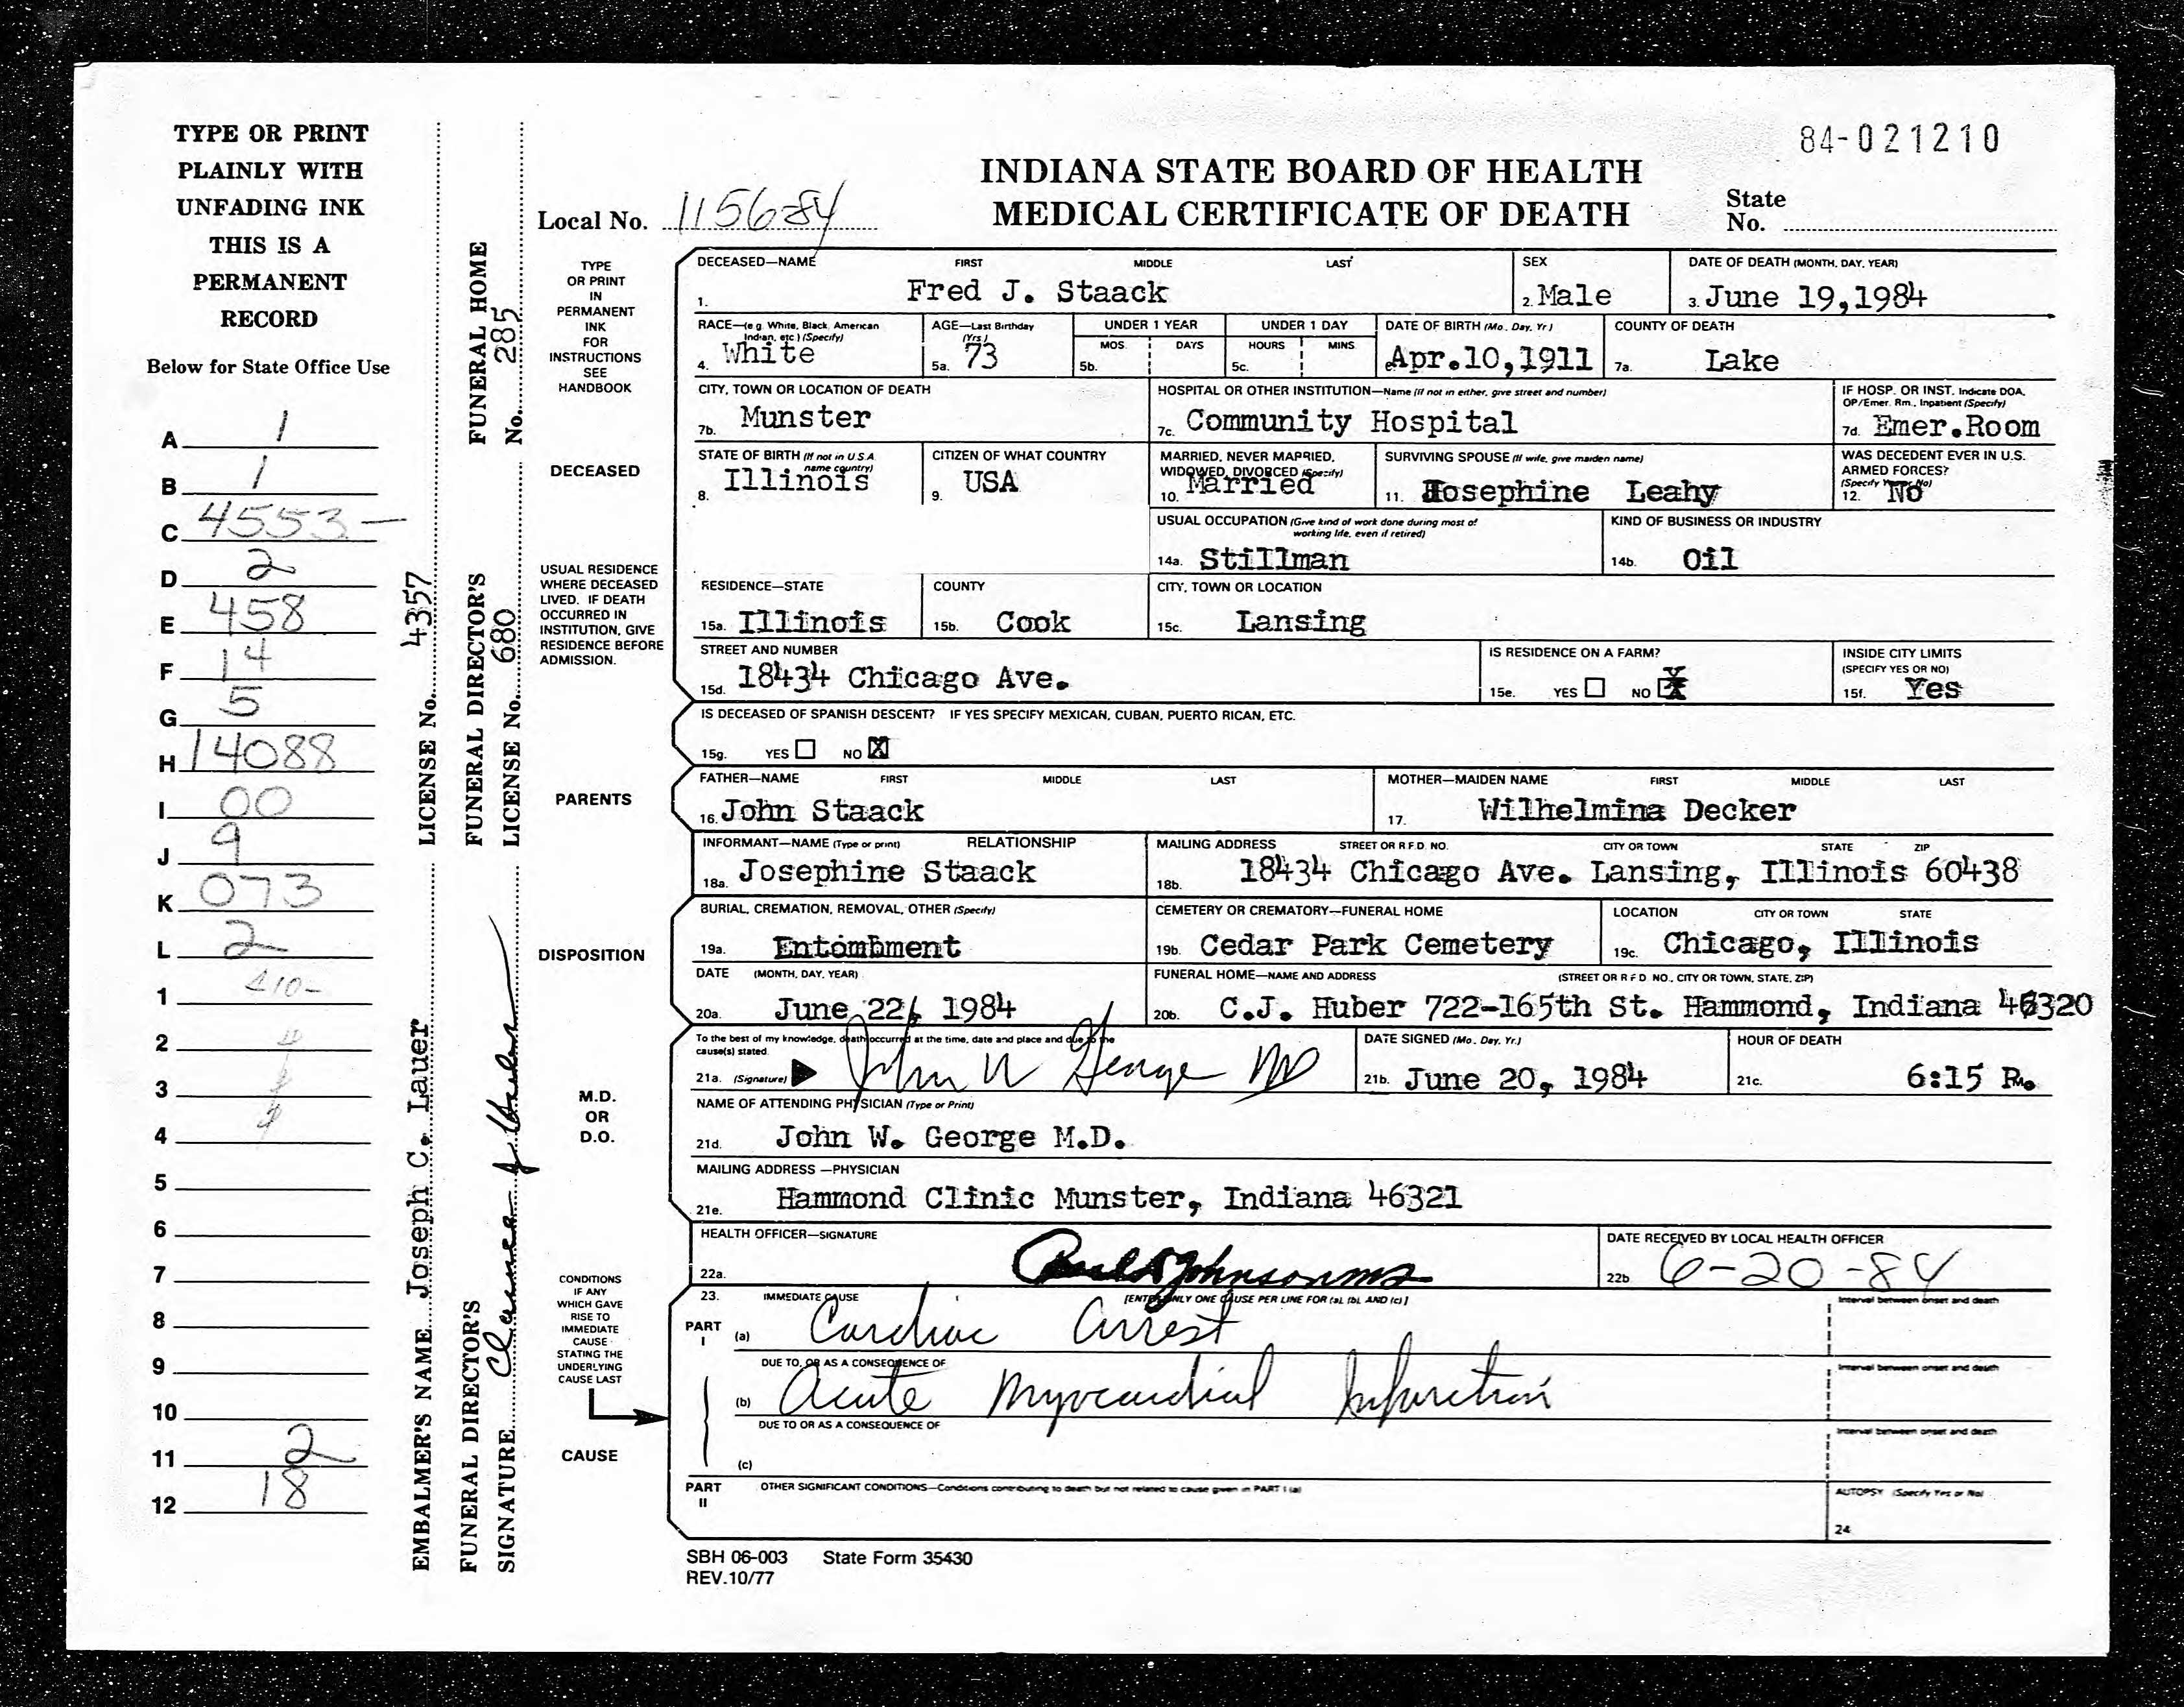 TYPE OR PRINT
PLAINLY WITH
UNFADING INK
THIS IS A
PERMANENT
RECORD
Below for State Office Use
A 1
B 1
C 4553-
D 2
E 458
F 14
G 5
H 14088
I 00
J 9
K 073
L 2
1
2
3
4
5
6
7
8
9
10
11 2
12 18
EMBALMER'S NAME Joseph C. Lauer LICENSE No. 4357
FUNERAL DIRECTOR'S SIGNATURE
FUNERAL DIRECTOR'S LICENSE No. 680
FUNERAL HOME No. 285
84-021210
INDIANA STATE BOARD OF HEALTH
MEDICAL CERTIFICATE OF DEATH
Local No. 1156-84
State
No.
TYPE
OR PRINT
IN
PERMANENT
INK
FOR
INSTRUCTIONS
SEE
HANDBOOK
DECEASED—NAME FIRST MIDDLE LAST SEX DATE OF DEATH (MONTH, DAY, YEAR)
1. Fred J. Staack 2. Male 3. June 19,1984
RACE—(e.g. White, Black, American Indian, etc.) (Specify) AGE—Last Birthday (Yrs.) UNDER 1 YEAR UNDER 1 DAY DATE OF BIRTH (Mo., Day, Yr.) COUNTY OF DEATH
MOS. DAYS HOURS MINS.
4. White 5a. 73 5b. 5c. 6. Apr.10,1911 7a. Lake
CITY, TOWN OR LOCATION OF DEATH HOSPITAL OR OTHER INSTITUTION—Name (If not in either, give street and number) IF HOSP. OR INST. Indicate DOA, OP/Emer. Rm., Inpatient (Specify)
7b. Munster 7c. Community Hospital 7d. Emer.Room
DECEASED
STATE OF BIRTH (If not in U.S.A. name country) CITIZEN OF WHAT COUNTRY MARRIED, NEVER MARRIED, WIDOWED, DIVORCED (Specify) SURVIVING SPOUSE (If wife, give maiden name) WAS DECEDENT EVER IN U.S. ARMED FORCES? (Specify Yes or No)
8. Illinois 9. USA 10. Married 11. Josephine Leahy 12. No
USUAL OCCUPATION (Give kind of work done during most of working life, even if retired) KIND OF BUSINESS OR INDUSTRY
14a. Stillman 14b. Oil
USUAL RESIDENCE
WHERE DECEASED
LIVED. IF DEATH
OCCURRED IN
INSTITUTION, GIVE
RESIDENCE BEFORE
ADMISSION.
RESIDENCE—STATE COUNTY CITY, TOWN OR LOCATION
15a. Illinois 15b. Cook 15c. Lansing
STREET AND NUMBER IS RESIDENCE ON A FARM? INSIDE CITY LIMITS (SPECIFY YES OR NO)
15d. 18434 Chicago Ave. 15e. YES NO X 15f. Yes
IS DECEASED OF SPANISH DESCENT? IF YES SPECIFY MEXICAN, CUBAN, PUERTO RICAN, ETC.
15g. YES NO X
PARENTS
FATHER—NAME FIRST MIDDLE LAST MOTHER—MAIDEN NAME FIRST MIDDLE LAST
16. John Staack 17. Wilhelmina Decker
INFORMANT—NAME (Type or print) RELATIONSHIP MAILING ADDRESS STREET OR R.F.D. NO. CITY OR TOWN STATE ZIP
18a. Josephine Staack 18b. 18434 Chicago Ave. Lansing, Illinois 60438
DISPOSITION
BURIAL, CREMATION, REMOVAL, OTHER (Specify) CEMETERY OR CREMATORY—FUNERAL HOME LOCATION CITY OR TOWN STATE
19a. Entombment 19b. Cedar Park Cemetery 19c. Chicago, Illinois
DATE (MONTH, DAY, YEAR) FUNERAL HOME—NAME AND ADDRESS (STREET OR R.F.D. NO., CITY OR TOWN, STATE, ZIP)
20a. June 22, 1984 20b. C.J. Huber 722-165th St. Hammond, Indiana 46320
M.D.
OR
D.O.
To the best of my knowledge, death occurred at the time, date and place and due to the cause(s) stated. DATE SIGNED (Mo., Day, Yr.) HOUR OF DEATH
21a. (Signature) John W George MD 21b. June 20, 1984 21c. 6:15 P.
NAME OF ATTENDING PHYSICIAN (Type or Print)
21d. John W. George M.D.
MAILING ADDRESS —PHYSICIAN
21e. Hammond Clinic Munster, Indiana 46321
HEALTH OFFICER—SIGNATURE DATE RECEIVED BY LOCAL HEALTH OFFICER
22a. 22b 6-20-84
CONDITIONS
IF ANY
WHICH GAVE
RISE TO
IMMEDIATE
CAUSE
STATING THE
UNDERLYING
CAUSE LAST
CAUSE
23. IMMEDIATE CAUSE [ENTER ONLY ONE CAUSE PER LINE FOR (a), (b), AND (c)] Interval between onset and death
PART I (a) Cardiac Arrest
DUE TO, OR AS A CONSEQUENCE OF Interval between onset and death
(b) Acute Myocardial Infarction
DUE TO OR AS A CONSEQUENCE OF Interval between onset and death
(c)
PART II OTHER SIGNIFICANT CONDITIONS—Conditions contributing to death but not related to cause given in PART I (a) AUTOPSY (Specify Yes or No)
24
SBH 06-003 State Form 35430
REV.10/77